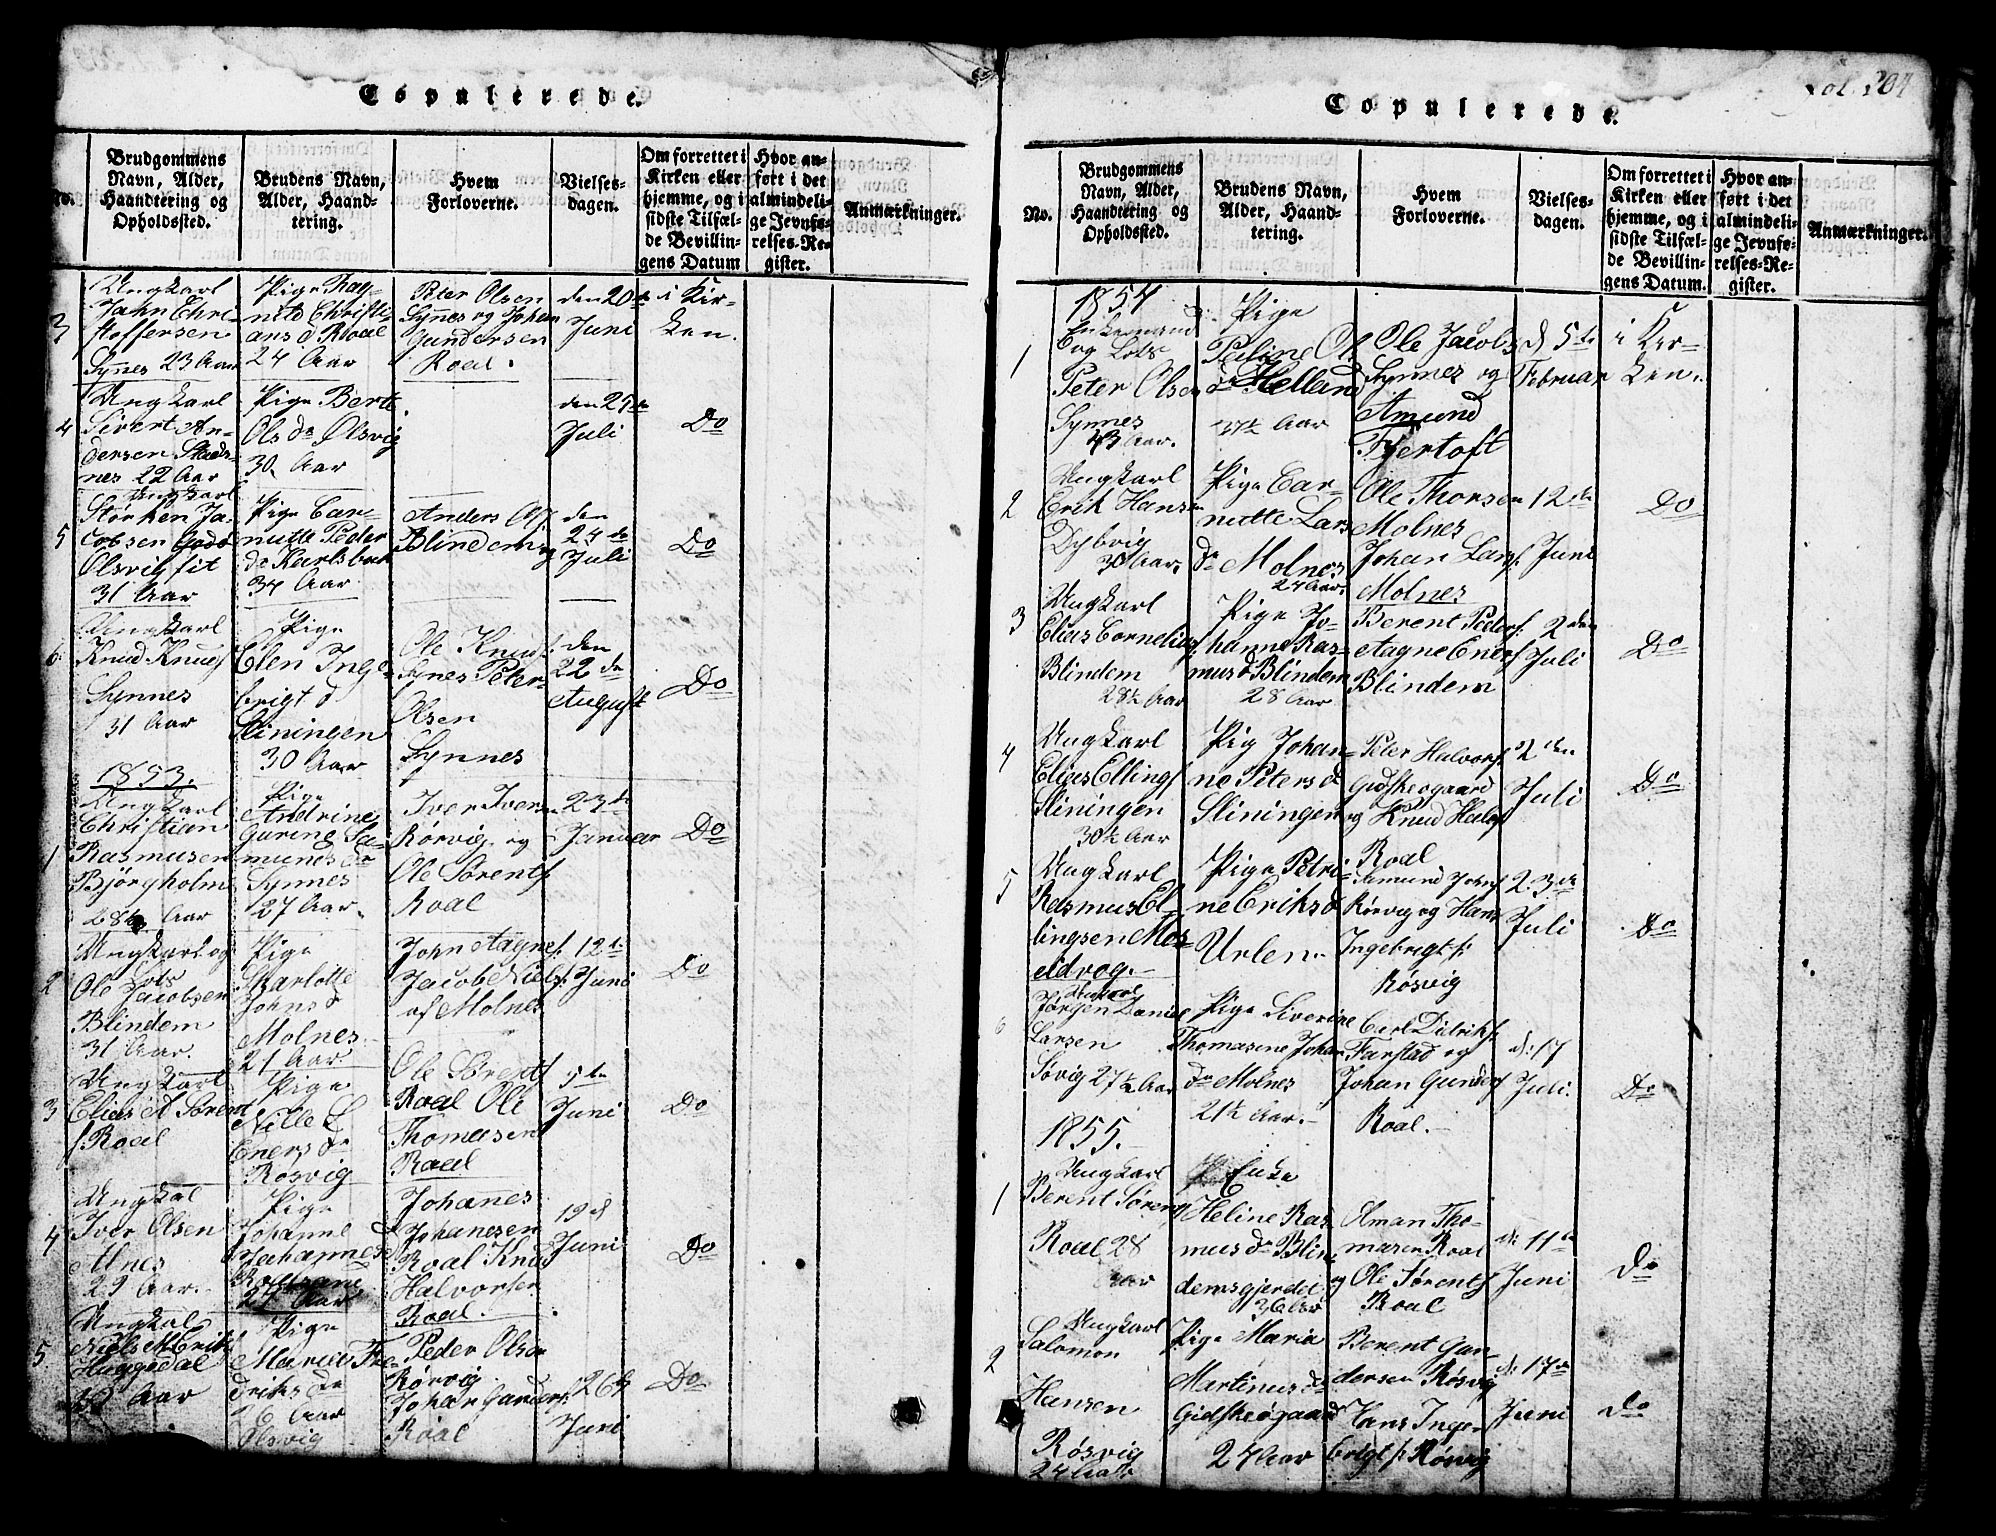 Copulerede.
No.
Brudgommens
Navn, Alder,
Haandtering og
Opholdssted.
Brudens Navn,
Alder, Haand-
tering.
Hvem
Forloverne.
Vielses-
dagen.
Om forrettet i
Kirken eller
hjemme, og i
sidste Tilfæl-
de Bevillin-
gens Datum
Hvor an-
ført i det
almindeli-
ge Jevnfø-
relses-Re-
gister.
Anmærkninger.
3
Ungkarl
Jahn Chri-
stoffersen
Synes 23 Aar
Pige Rag-
nild Christi-
ans d Roal
24 Aar
Peter Olsen
Synnes og Johan
Gundersen
Roal.
den 20de
Juni
i Kir-
ken.
4
Ungkarl
Sivert An-
dersen Stads-
nes 22 Aar
Pige Berte
Ols dr Olsvig
30 Aar
den 24de
Juli
Do
5
Ungkarl
Størken Ja-
cobsen Gods
Olsvig fit
31 Aar
Pige Car-
nutte Peder
dr Karlsbak
34 Aar
Anders Ols.
Blindem og
den
24de
Juli
Do
6
Ungkarl
Knud Knuds
Synnes
31 Aar
Pige
Elen Inge-
brigt d
Sliningen
30 Aar
Ole Knuds.
Synes Peter
Olsen
Synnes
den
22de
August
Do
1853.
1
Ungkarl
Christian
Rasmusen
Bjørgholm
28½ Aar
Pige
Andrine
Gurine Sa-
munds dr
Synnes
27 Aar.
Iver Ivers
Rørvig og
Ole Sørents.
Roal
23de
Januar
Do
2
Ungkarl og
Lots
Ole Jacobsen
Blindem
31 Aar.
Pige
Skarlotte
Johns d
Molnes.
21 Aar
John Aagnes.
Jacob Niels.
af Molnes
12te
Juni
Do
3
Ungkarl
Elias A Sørent
s. Roal
Pige
Nille E
Eners dr
Røsvig
Ole Sørents
Roal Ole
Thomasen
Roal
5te
Juni
Do
4
Ungkal
Iver Olsen
Alnes
29 Aar.
Pige
Johanne
Johannes d
24 Aar
Johanes
Johanesen
Roal Knud
Halvorsen
Roal.
19 d
Juni
Do
5
Ungkal
Niels M Eriks
Huggedal
Aar
Pige
Maria Fre-
driks dr
26 Aar
Olsvig
Peder Olsen
Rørvig
Johan Gunders.
Roal
26de
Juni
Do
Fol. 204
Copulerede.
No.
Brudgommens
Navn, Alder,
Haandtering og
Opholdssted.
Brudens Navn,
Alder, Haand-
tering.
Hvem
Forloverne.
Vielses-
dagen.
Om forrettet i
Kirken eller
hjemme, og i
sidste Tilfæl-
de Bevillin-
gens Datum.
Hvor an-
ført i det
almindeli-
ge Jevnfø-
relses-Re-
gister.
Anmærkninger.
1854
1
Enkemand
og Lots
Peter Olsen
Synnes
43 Aar.
Pige
Peline Ols
dr Helland
37½ Aar
Ole Jacobs
Synnes og
Amund
Fjertoft
d 5te
Februar
i Kir-
ken.
2
Ungkarl
Erik Hansen
Dybvig
30 Aar.
Pige Car-
nutte Lars
dr Molnes
24 Aar.
Ole Thorsen
Molnes
Johan Lars.
Molnes
12de
Juni
Do
3
Ungkarl
Elias Cornelius.
Blindem
28½ Aar
Pige Jo-
hanne Ras-
mus d Blindem
28 Aar
Berent Peders.
Aagne Eners.
Blindem
2den
Juli
Do
4
Ungkarl
Elias Ellings
Sliningen
30½ Aar
Pig Johan-
ne Peters d
Sliningen
Peter Halvors
Gidskeøgaard
og Knud Halvs
Roal
2den
Juli
Do
5
Ungkarl
Rasmus El-
lingsen Mos
eidvog.
Pige Petri-
ne Eriks d
Urlen.
Samund Johns
Rørvig og Hans
Ingebrigts.
Røsvig
23de
Juli
Do
6
Ungkarl
Jørgen Daniel
Larsen
Søvig 27½ Aar
Pige Siverine
Thomasine Johan
dr Molnes
21½ Aar.
Carl Didriks.
Farstad og
Johan Gunders
Roal.
d: 17
Juli.
Do
1855.
1
Ungkarl
Berent Sørens
Roal 28
Aar
Enke
Heline Ras-
mus dr Blin-
demsgjerdet
36 Aar
Elman Tho-
masen Roal
og Ole Sørents.
Roal
d: 11te
Juni
Do
2
Ungkarl
Salomon
Hansen
Røsvig
24 Aar
Pige Maria
Martinus dr
Gidskeøgaard
24 Aar
Berent Gun-
dersen Røsvig
Hans Inge-
brigt s. Røsvig
d: 17de
Juni
Do